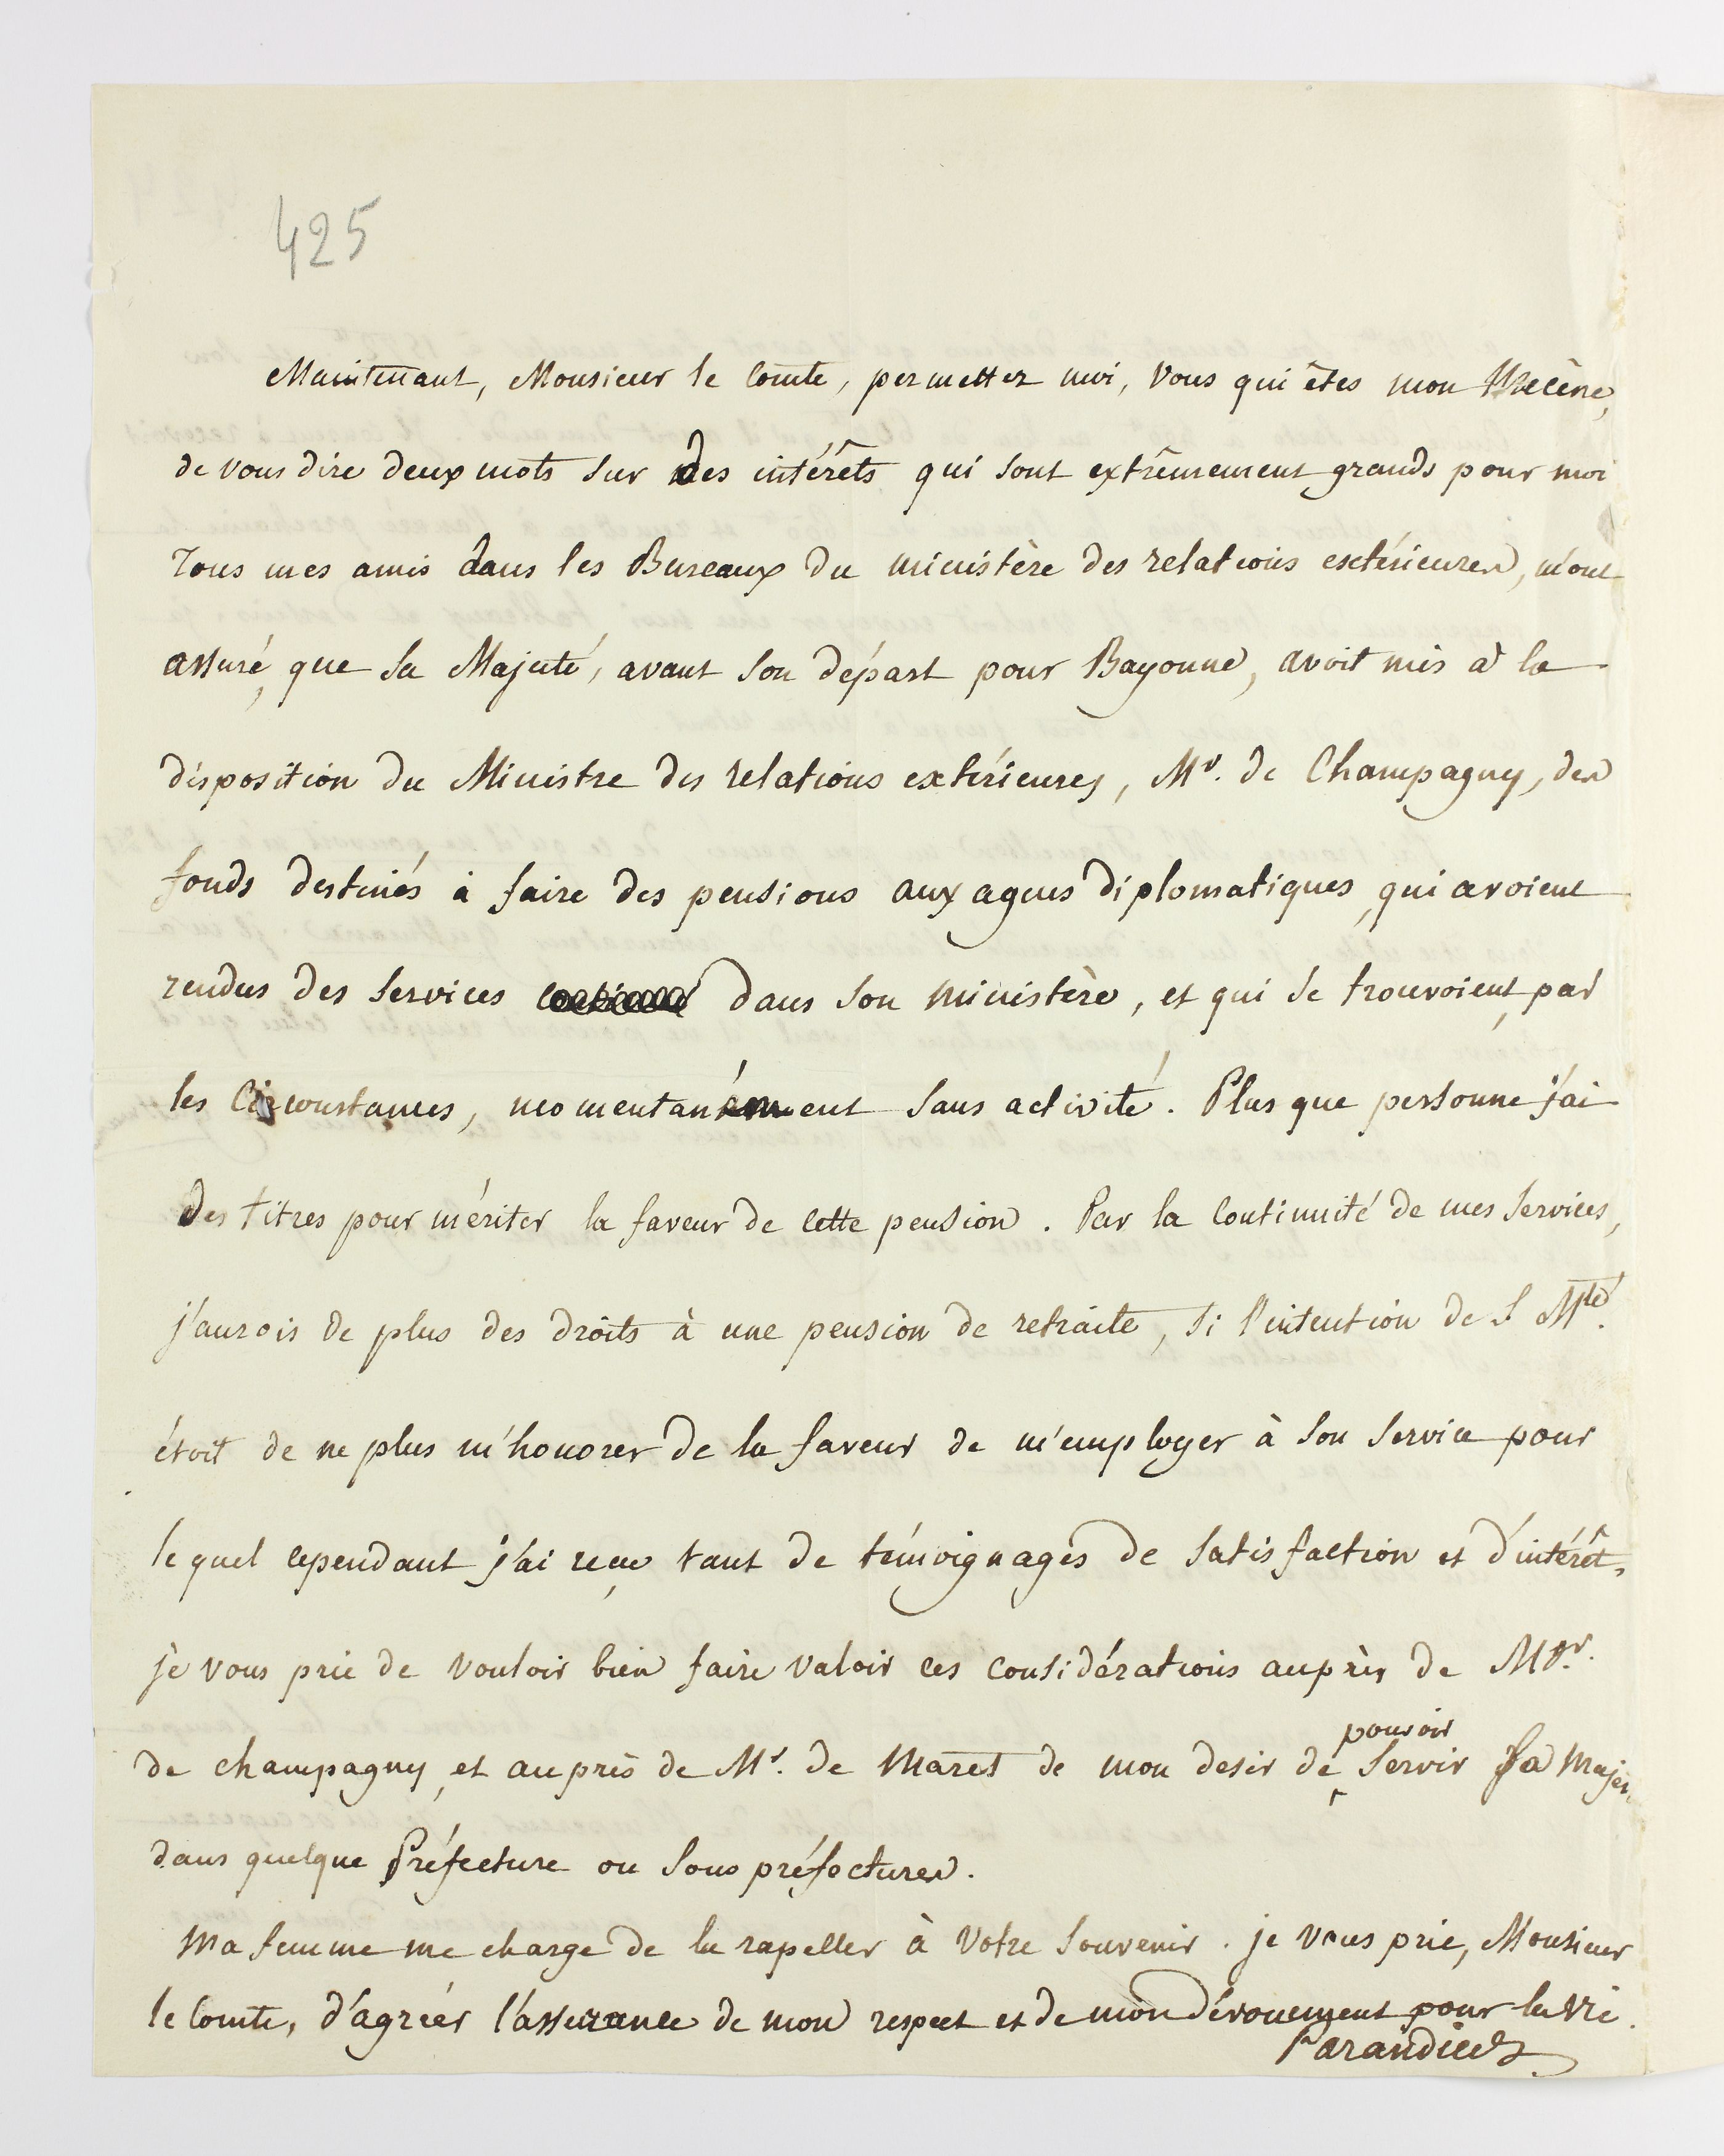 425
Maintenant, Monsieur le Comte, permettez moi, Vous qui êtes mon Mecène,
de vous dire deux mots sur des intérêts qui sont extrêmement grands pour moi
Tous mes amis dans les Bureaux du ministère des relations extérieures, m'ont
assuré, que Sa Majesté, avant son départ pour Bayonne, avoit mis à la
disposition du Ministre des relations extérieures, Mr. de Champagny, des
fonds destinés à faire des pensions aux agens diplomatiques, qui avoient
rendus des services dans son ministère, et qui se trouvoient, par
les Circonstances, momentanément sans activité. Plus que personne j'ai
Des titres pour mériter la faveur de cette pension. Par la Continuité de mes Services,
j'aurois de plus des droits à une pension de retraite, si l'intention de S Mté.
étoit de ne plus m'honorer de la faveur de m'employer à son service pour
lequel cependant j'ai reçu tant de témoignages de satisfaction et d'intérêt,
je vous prie de vouloir bien faire valoir ces considérations auprès de Mgr.
de champagny, et auprès de Mr. de Maret de mon desir de pouvoir servir Sa Majes,
dans quelque Préfecture ou Sous préfectures.
Ma femme me charge de la rapeller à Votre Souvenir. je vous prie, Monsieur
le Comte, d'agréer l'assurance de mon respect et de mon dévouement pour la vie.
Parandier